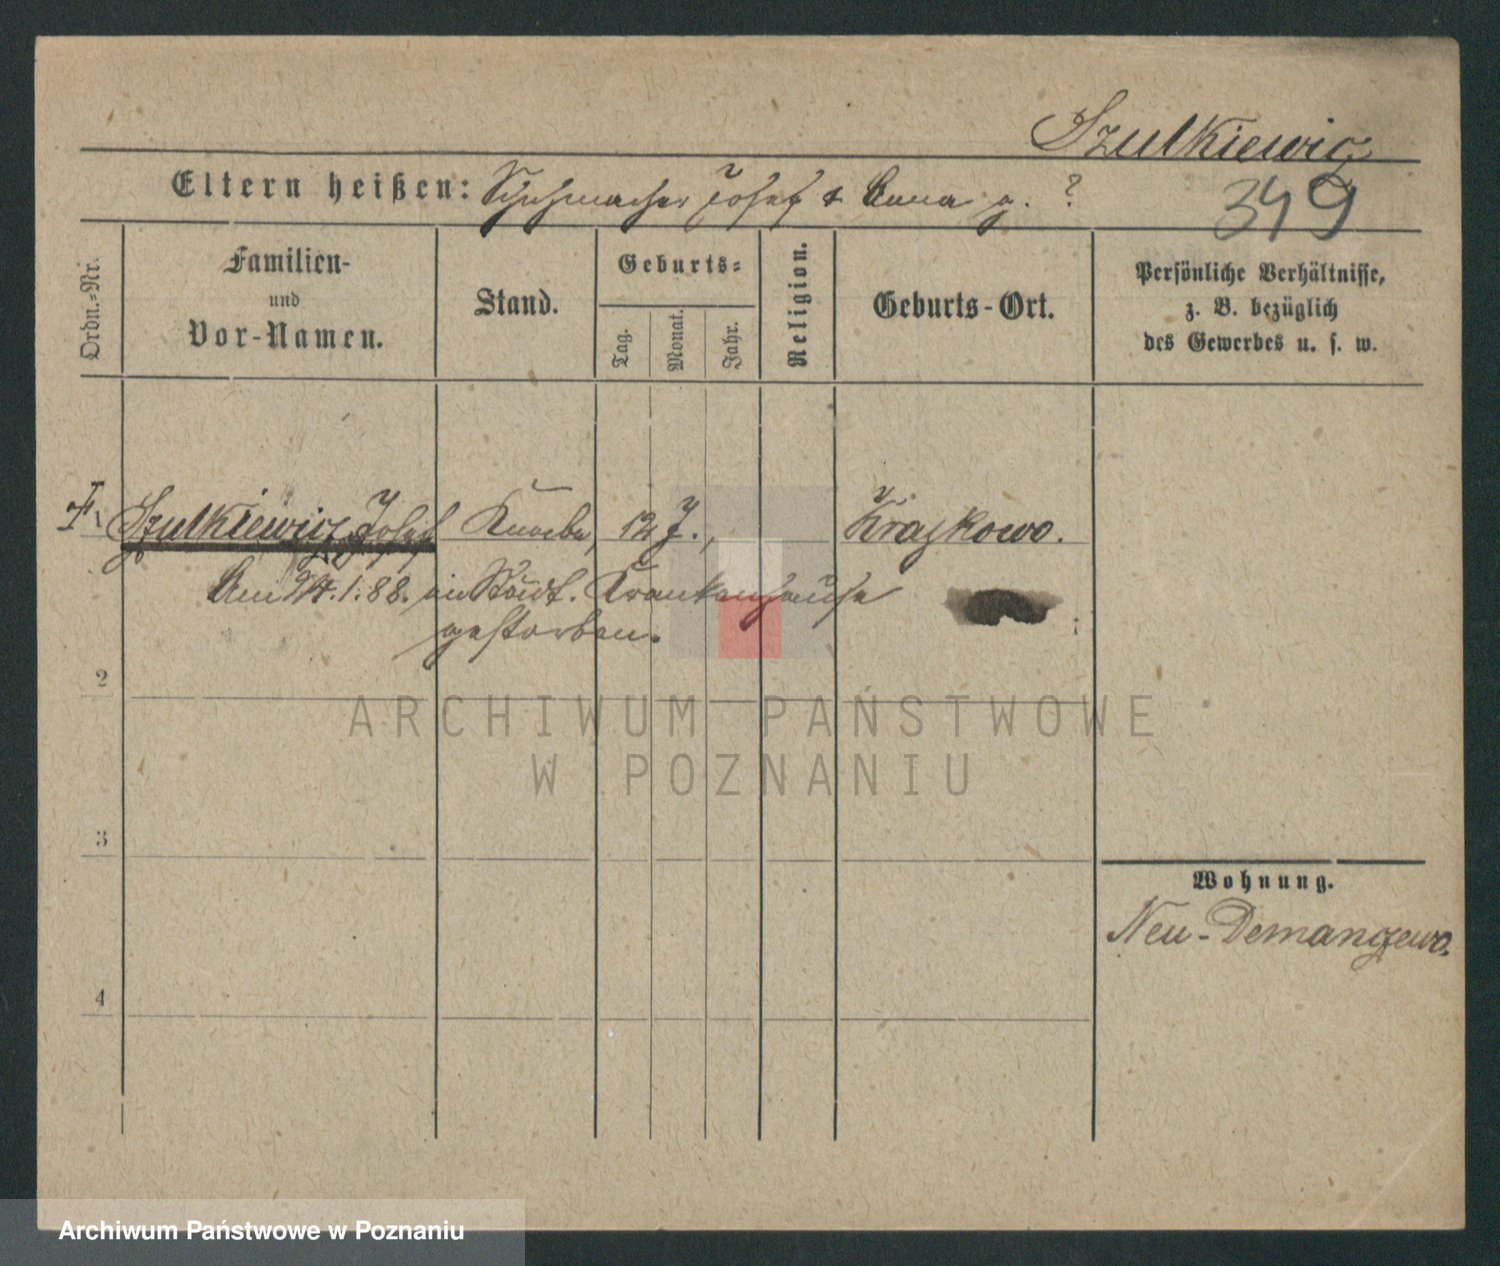 Szulkiewicz
Eltern heißen: Schuhmacher Josef & Anna g. ?
349
Ordn.-Nr.
Familien-
und
Vor-Namen.
Stand.
Geburts-
Tag.
Monat.
Jahr.
Religion.
Geburts-Ort.
Persönliche Verhältnisse,
z. B. bezüglich
des Gewerbes u. s. w.
1 Szulkiewicz Josef Knabe, 12 J., Krajkowo.
Am 24.1.88. im Städt. Krankenhause
gestorben.
2
ARCHIWUM PAŃSTWOWE
W POZNANIU
3
Wohnung.
Neu-Demanczewo.
4
Archiwum Państwowe w Poznaniu